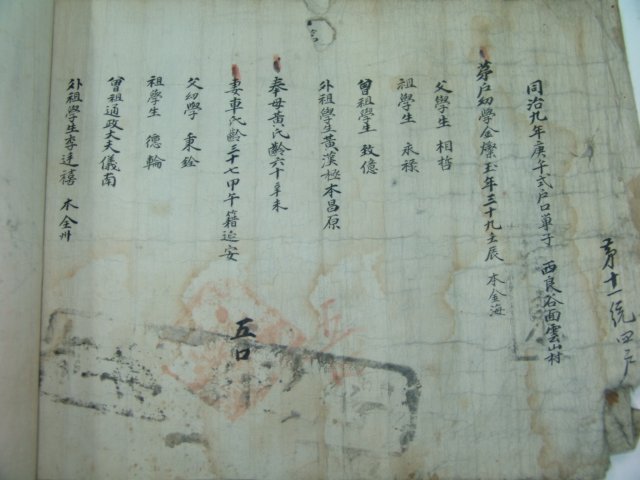 同治九年庚午式戶口單子 西良谷面雲山村
第十一統四戶
第 戶幼學金燦玉年三十九壬辰 本金海
父學生 相哲
祖學生 永祿
曾祖學生 致億
外祖學生黃漢極本昌原
奉母黃氏齡六十辛未
妻車氏齡三十七甲午籍延安
父幼學 秉銓
祖學生 德輪
曾祖通政大夫儀南
外祖學生李達禧 本全州
五口